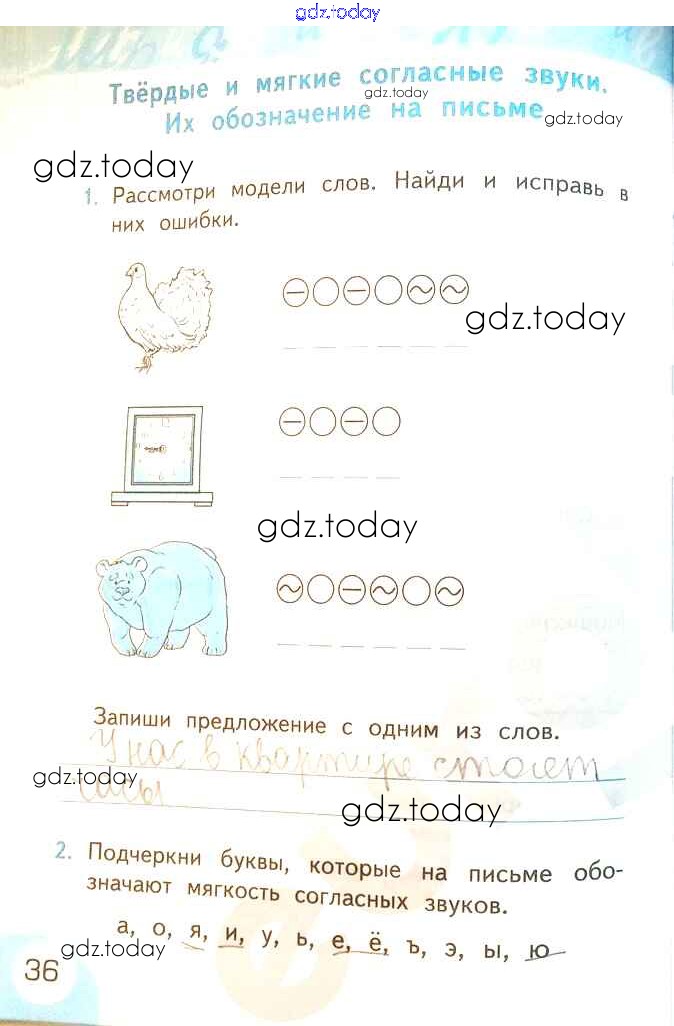 gdz.today
Твёрдые и мягкие согласные звуки.
gdz.today
Их обозначение на письме
gdz.today
gdz.today
1. Рассмотри модели слов. Найди и исправь в
них ошибки.
gdz.today
gdz.today
Запиши предложение с одним из слов.
У нас в квартире стоют
gdz.today
часы
gdz.today
2. Подчеркни буквы, которые на письме обо-
значают мягкость согласных звуков.
а, о, я, и, у, ь, е, ё, ъ, э, ы, ю
gdz.today
36